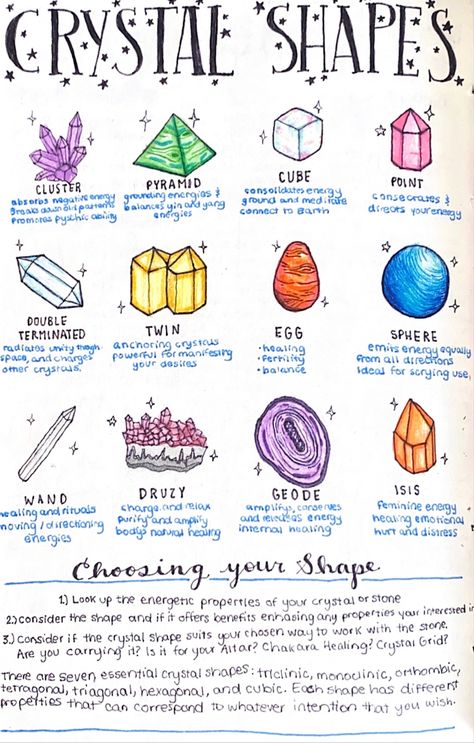 CRYSTAL SHAPES
CLUSTER
absorbs negative energy
Breaks down old patterns
Promotes pyschic ability
PYRAMID
grounding energies &
balances yin and yang
energies
CUBE
consolidates energy
ground and meditate
connect to Earth
POINT
consecrates &
directs your energy
DOUBLE
TERMINATED
radiates unity though
space, and charges
other crystals.
TWIN
anchoring crystals
powerful for manifesting
your desires
EGG
• healing
• fertility
• balance
SPHERE
emits energy equally
from all directions
Ideal for scrying use,
WAND
healing and rituals
moving / directioning
energies
DRUZY
charge and relax
Purify and amplify
bodys natural healing
GEODE
amplifys, conserves
and releases energy
internal healing
ISIS
Feminine energy
healing emotional
hurt and distress
Choosing your Shape
1.) Look up the energetic properties of your crystal or stone
2.) consider the shape and if it offers benefits enhasing any properties your interested in
3.) Consider if the crystal shape suits your chosen way to work with the stone.
Are you carrying it? Is it for your Altar? Chakara Healing? Crystal Grid?
There are seven essential crystal shapes: triclinic, monoclinic, orthombic,
tetragonal, triagonal, hexagonal, and cubic. Each shape has different
properties that can correspond to whatever intention that you wish.